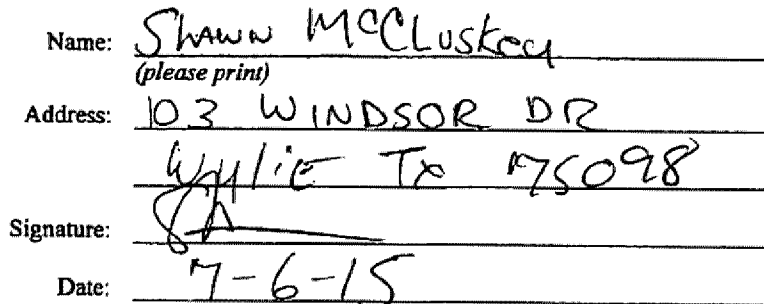 Name: Shawn McCluskey
(please print)
Address: 103 WINDSOR DR
Wylie Tx 75098
Signature:
Date: 7-6-15